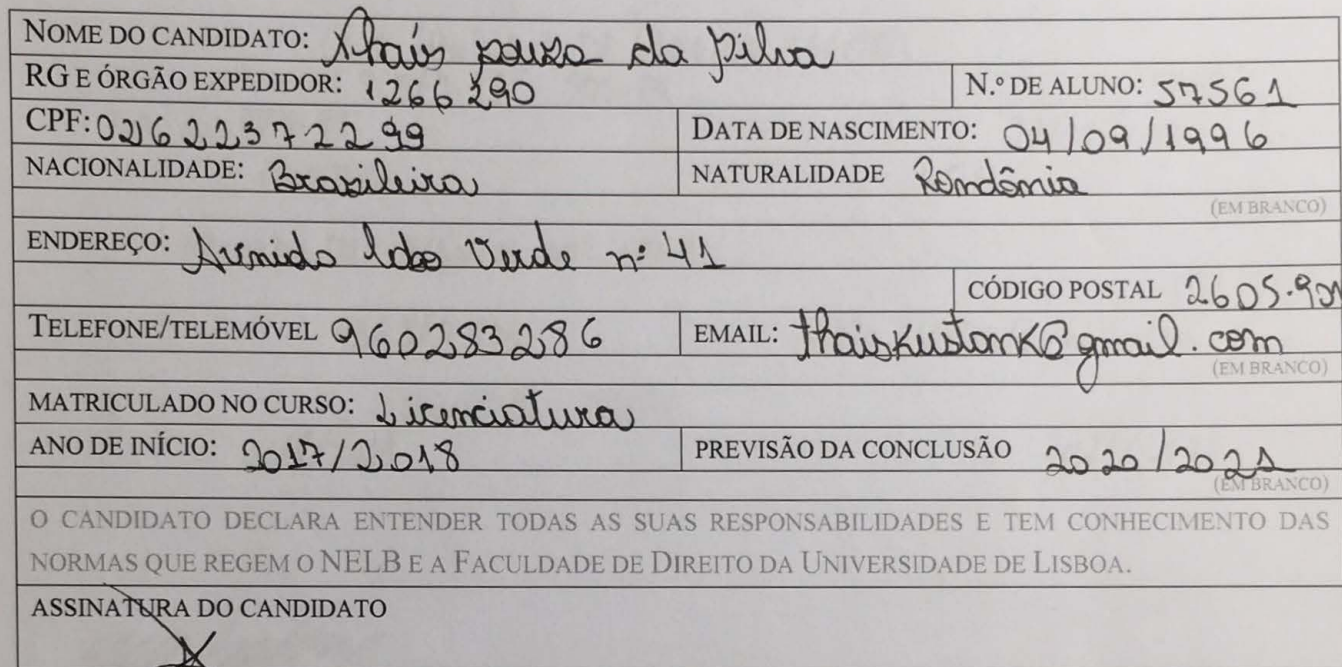 NOME DO CANDIDATO: Thaís souza da Silva
RG E ÓRGÃO EXPEDIDOR: 1266290 N.º DE ALUNO: 57561
CPF: 02622372299 DATA DE NASCIMENTO: 04/09/1996
NACIONALIDADE: Brasileira NATURALIDADE Rondônia
(EM BRANCO)
ENDEREÇO: Verde nº 41
CÓDIGO POSTAL
TELEFONE/TELEMÓVEL 960283286 EMAIL: thaiskustomk@gmail.com
(EM BRANCO)
MATRICULADO NO CURSO: Licenciatura
ANO DE INÍCIO: 2017/2018 PREVISÃO DA CONCLUSÃO 2020/2021
(EM BRANCO)
O CANDIDATO DECLARA ENTENDER TODAS AS SUAS RESPONSABILIDADES E TEM CONHECIMENTO DAS
NORMAS QUE REGEM O NELB E A FACULDADE DE DIREITO DA UNIVERSIDADE DE LISBOA.
ASSINATURA DO CANDIDATO